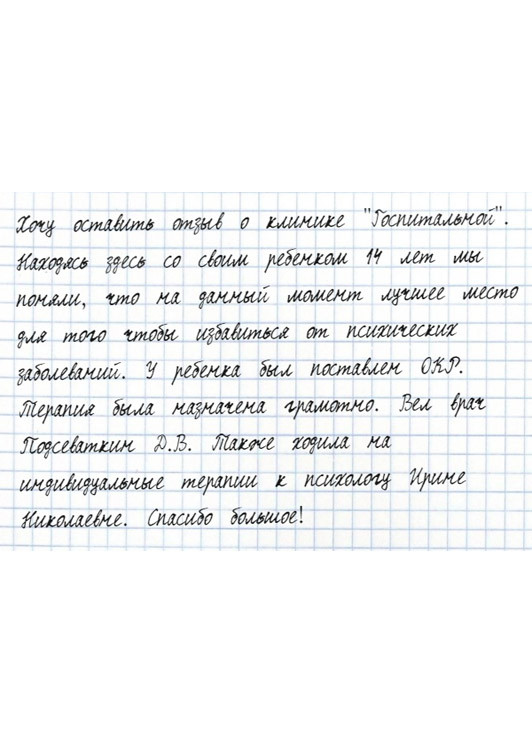 Хочу оставить отзыв о клинике "Госпитальной".
Находясь здесь со своим ребенком 14 лет мы
поняли, что на данный момент лучшее место
для того чтобы избавиться от психических
заболеваний. У ребенка был поставлен ОКР.
Терапия была назначена грамотно. Вел врач
Подсеваткин Д.В. Также ходила на
индивидуальные терапии к психологу Ирине
Николаевне. Спасибо большое!